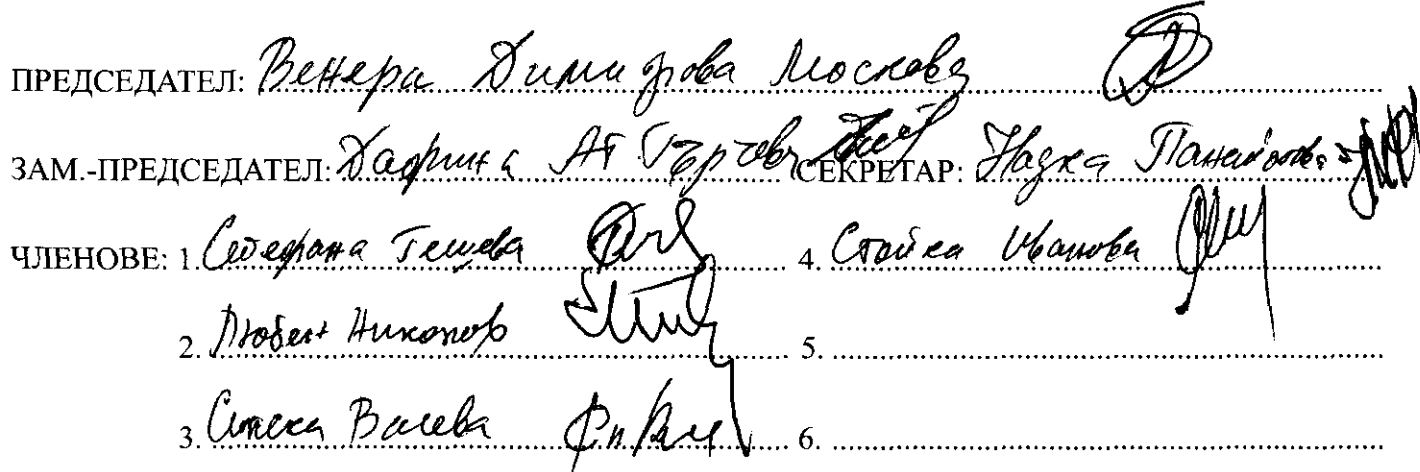 ПРЕДСЕДАТЕЛ: Венера Димитрова Москова
ЗАМ.-ПРЕДСЕДАТЕЛ: Дафина Ат СЕКРЕТАР: Надка Панайотова
ЧЛЕНОВЕ: 1. Стефана Гешева 4. Стойка Иванова
2. Любен Николов 5.
3. Вълева 6.